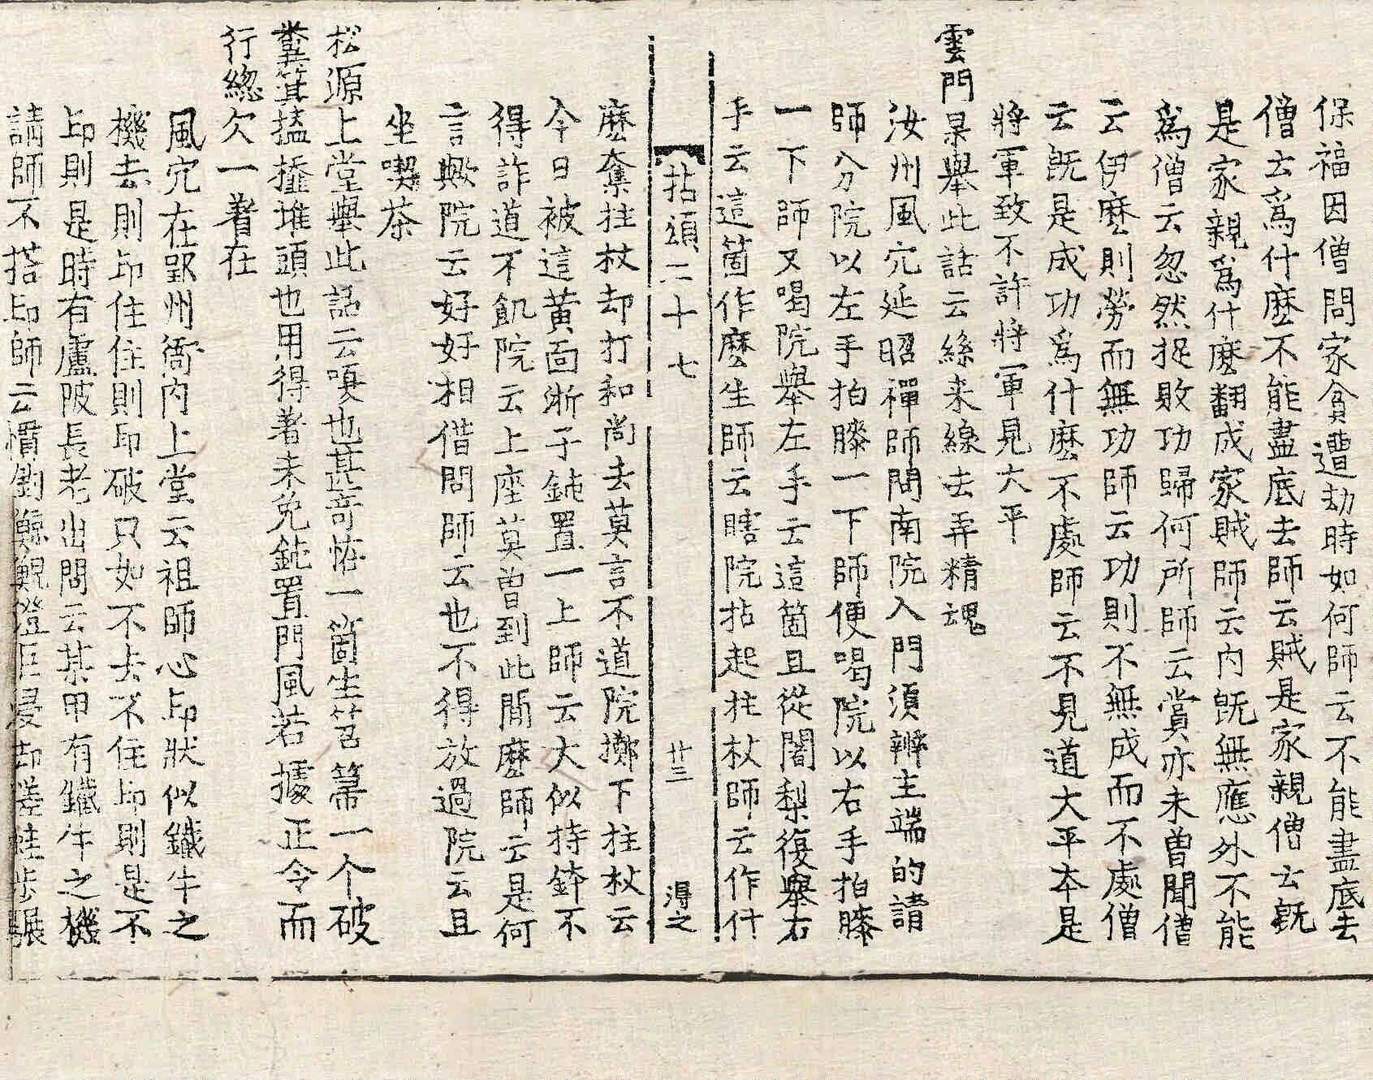 保福因僧問家貧遭劫時如何師云不能盡底去
僧云爲什麽不能盡底去師云賊是家親僧云旣
是家親爲什麽翻成家賊師云內旣無應外不能
爲僧云忽然捉敗功歸何所師云賞亦未曾聞僧
云伊麽則勞而無功師云功則不無成而不處僧
云旣是成功爲什麽不處師云不見道大平本是
將軍致不許將軍見大平
雲門杲舉此話云絲来線去弄精魂
汝州風穴延昭禪師問南院入門須辨主端的請
師分院以左手拍膝一下師便喝院以右手拍膝
一下師又喝院舉左手云這箇且從闍梨復舉右
手云這箇作麽生師云瞎院拈起拄杖師云作什
拈頌二十七 廿三 淂之
麽奪拄杖却打和尚去莫言不道院擲下拄杖云
今日被這黄面浙子鈍置一上師云大似持鉢不
得詐道不飢院云上座莫曾到此間麽師云是何
言歟院云好好相借問師云也不得放過院云且
坐喫茶
松源上堂舉此話云嗄也甚竒恠一箇生笤箒一个破
糞箕搕𢶍堆頭也用得著未免鈍置門風若據正令而
行緫欠一着在
風穴在郢州衙內上堂云祖師心印狀似鐵牛之
機去則印住住則印破只如不去不住印則是不
印則是時有盧陂長老出問云某甲有鐵牛之機
請師不搭印師云慣釣鯨鯢澄巨浸却嗟蛙步𩥇